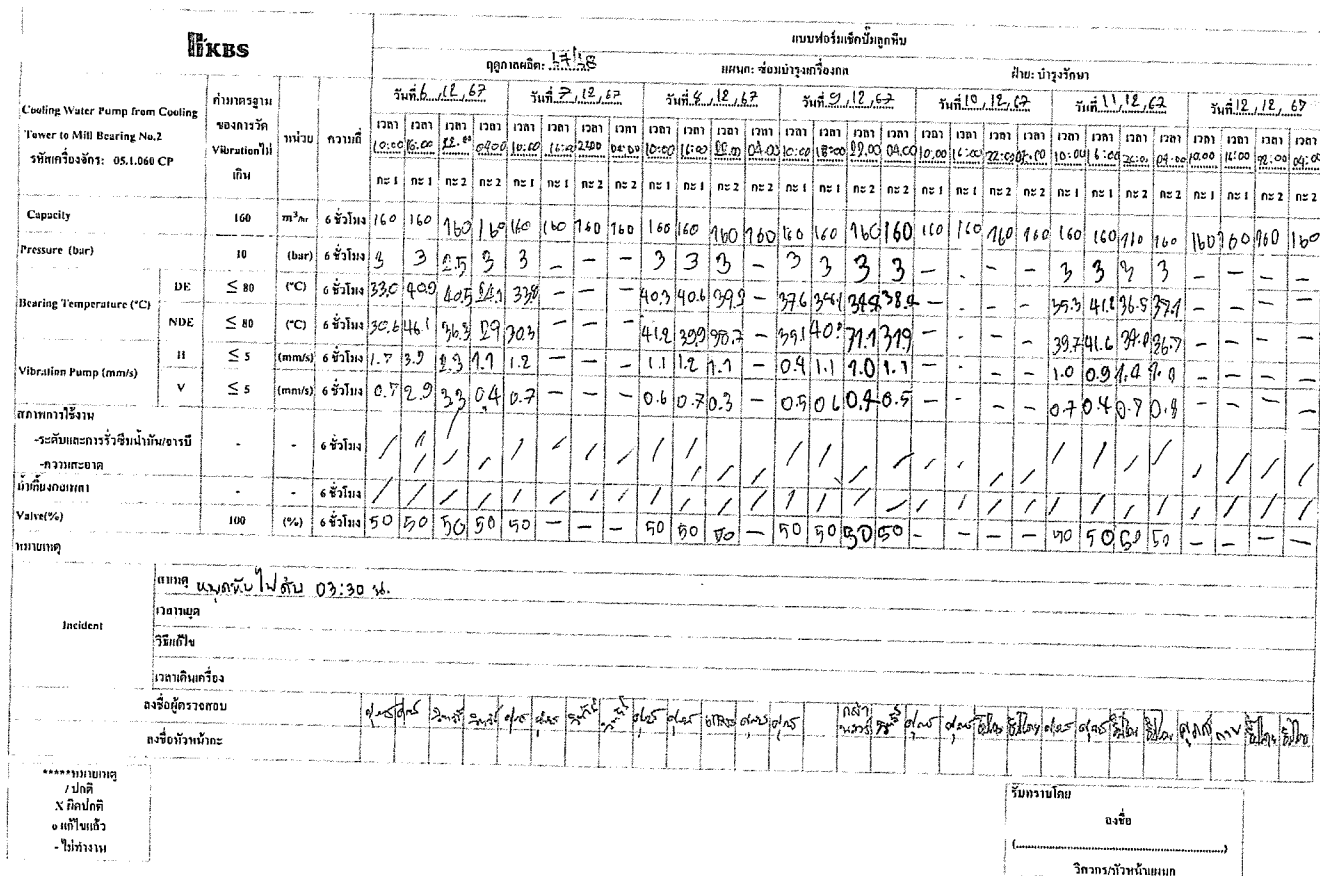 KBS
แบบฟอร์มเช็คปั๊มลูกหีบ
ฤดูกาลผลิต: 17/18 แผนก: ซ่อมบำรุงเครื่องกล ฝ่าย: บำรุงรักษา
Cooling Water Pump from Cooling Tower to Mill Bearing No.2
รหัสเครื่องจักร: 05.1.060 CP
ค่ามาตรฐานของการวัด Vibrationไม่เกิน หน่วย ความถี่
วันที่ 6, 12, 67 วันที่ 7, 12, 67 วันที่ 8, 12, 67 วันที่ 9, 12, 67 วันที่ 10, 12, 67 วันที่ 11, 12, 67 วันที่ 12, 12, 67
เวลา เวลา เวลา เวลา เวลา เวลา เวลา เวลา เวลา เวลา เวลา เวลา เวลา เวลา เวลา เวลา เวลา เวลา เวลา เวลา เวลา เวลา เวลา เวลา เวลา เวลา เวลา เวลา
10:00 16:00 22.00 04:00 10:00 16:00 22:00 04:00 10:00 16:00 22.00 04:00 10:00 16:00 22.00 04.00 10:00 16:00 22:00 10:00 16:00 04:00 10.00 16:00 22:00 04:00
กะ 1 กะ 1 กะ 2 กะ 2 กะ 1 กะ 1 กะ 2 กะ 2 กะ 1 กะ 1 กะ 2 กะ 2 กะ 1 กะ 1 กะ 2 กะ 2 กะ 1 กะ 1 กะ 2 กะ 2 กะ 1 กะ 1 กะ 2 กะ 2 กะ 1 กะ 1 กะ 2 กะ 2
Capacity 160 m³/hr 6 ชั่วโมง 160 160 160 160 160 160 160 160 160 160 160 160 160 160 160 160 160 160 160 160 160 160 160 160 160 160 160
Pressure (bar) 10 (bar) 6 ชั่วโมง 3 3 2.5 3 3 - - - 3 3 3 - 3 3 3 3 - - - - 3 3 3 3 - - - -
Bearing Temperature (°C) DE ≤ 80 (°C) 6 ชั่วโมง 33.0 40.9 40.5 33.8 - - - 40.3 40.6 39.9 - 37.6 38.9 - - - - 39.3 41.2 36.5 37.1 - - - -
NDE ≤ 80 (°C) 6 ชั่วโมง 30.6 46.1 36.3 29 30.3 - - - 41.2 39.9 - 39.1 31.9 - - - - 39.7 41.6 39.0 36.7 - - - -
Vibration Pump (mm/s) H ≤ 5 (mm/s) 6 ชั่วโมง 1.7 3.9 2.3 1.1 1.2 - - - 1.1 1.2 1.1 - 0.9 1.1 1.0 1.1 - - - - 1.0 0.9 1.0 - - - -
V ≤ 5 (mm/s) 6 ชั่วโมง 0.7 2.9 3.3 0.4 0.7 - - - 0.6 0.7 0.3 - 0.5 0.6 0.4 0.5 - - - - 0.7 0.4 0.8 - - - -
สภาพการใช้งาน
-ระดับและการรั่วซึมน้ำมัน/จารบี - - 6 ชั่วโมง / / / / / / / / / / / / / / / / / / / / / / / / / / / /
-ความสะอาด
- - 6 ชั่วโมง / / / / / / / / / / / / / / / / / / / / / / / / / / / /
Valve(%) 100 (%) 6 ชั่วโมง 50 50 50 50 50 - - - 50 50 50 - 50 50 50 50 - - - - 50 50 50 50 - - - -
หมายเหตุ
Incident
สาเหตุ หยุดหีบ ไฟดับ 03:30 น.
เวลาหยุด
วิธีแก้ไข
เวลาเดินเครื่อง
ลงชื่อผู้ตรวจสอบ
ลงชื่อหัวหน้ากะ
*****หมายเหตุ
/ ปกติ
X ผิดปกติ
o แก้ไขแล้ว
- ไม่ทำงาน
รับทราบโดย
ลงชื่อ
(..............................)
วิศวกร/หัวหน้าแผนก